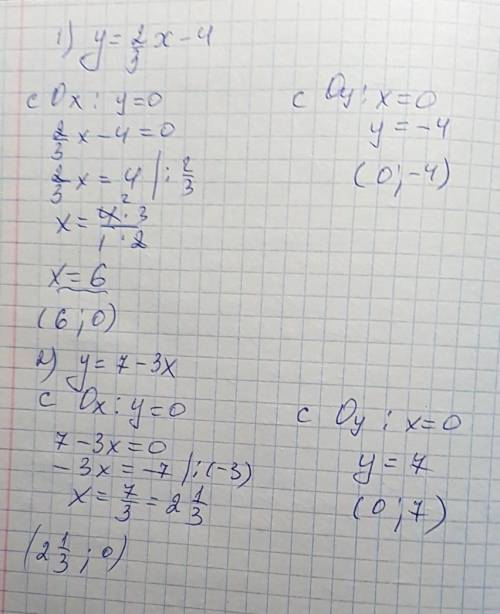 1) y = 2/3 x - 4
с Ox: y = 0
2/3 x - 4 = 0
2/3 x = 4 |: 2/3
x = 4² · 3 / 1 · 2
x = 6
(6; 0)
с Oy: x = 0
y = -4
(0; -4)
2) y = 7 - 3x
с Ox: y = 0
7 - 3x = 0
-3x = -7 |: (-3)
x = 7/3 = 2 1/3
(2 1/3; 0)
с Oy: x = 0
y = 7
(0; 7)